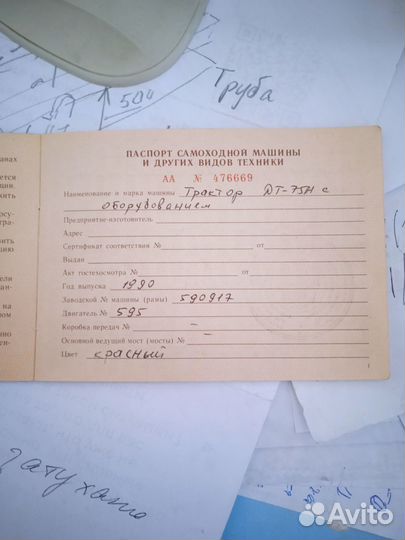 Труба
500
ПАСПОРТ САМОХОДНОЙ МАШИНЫ
И ДРУГИХ ВИДОВ ТЕХНИКИ
АА № 476669
Наименование и марка машины Трактор ДТ-75Н с
оборудованием
Предприятие-изготовитель
Адрес
Сертификат соответствия № от
Выдан
Акт гостехосмотра № от
Год выпуска 1990
Заводской № машины (рамы) 590917
Двигатель № 595
Коробка передач № –
Основной ведущий мост (мосты) № –
Цвет красный
1
Avito